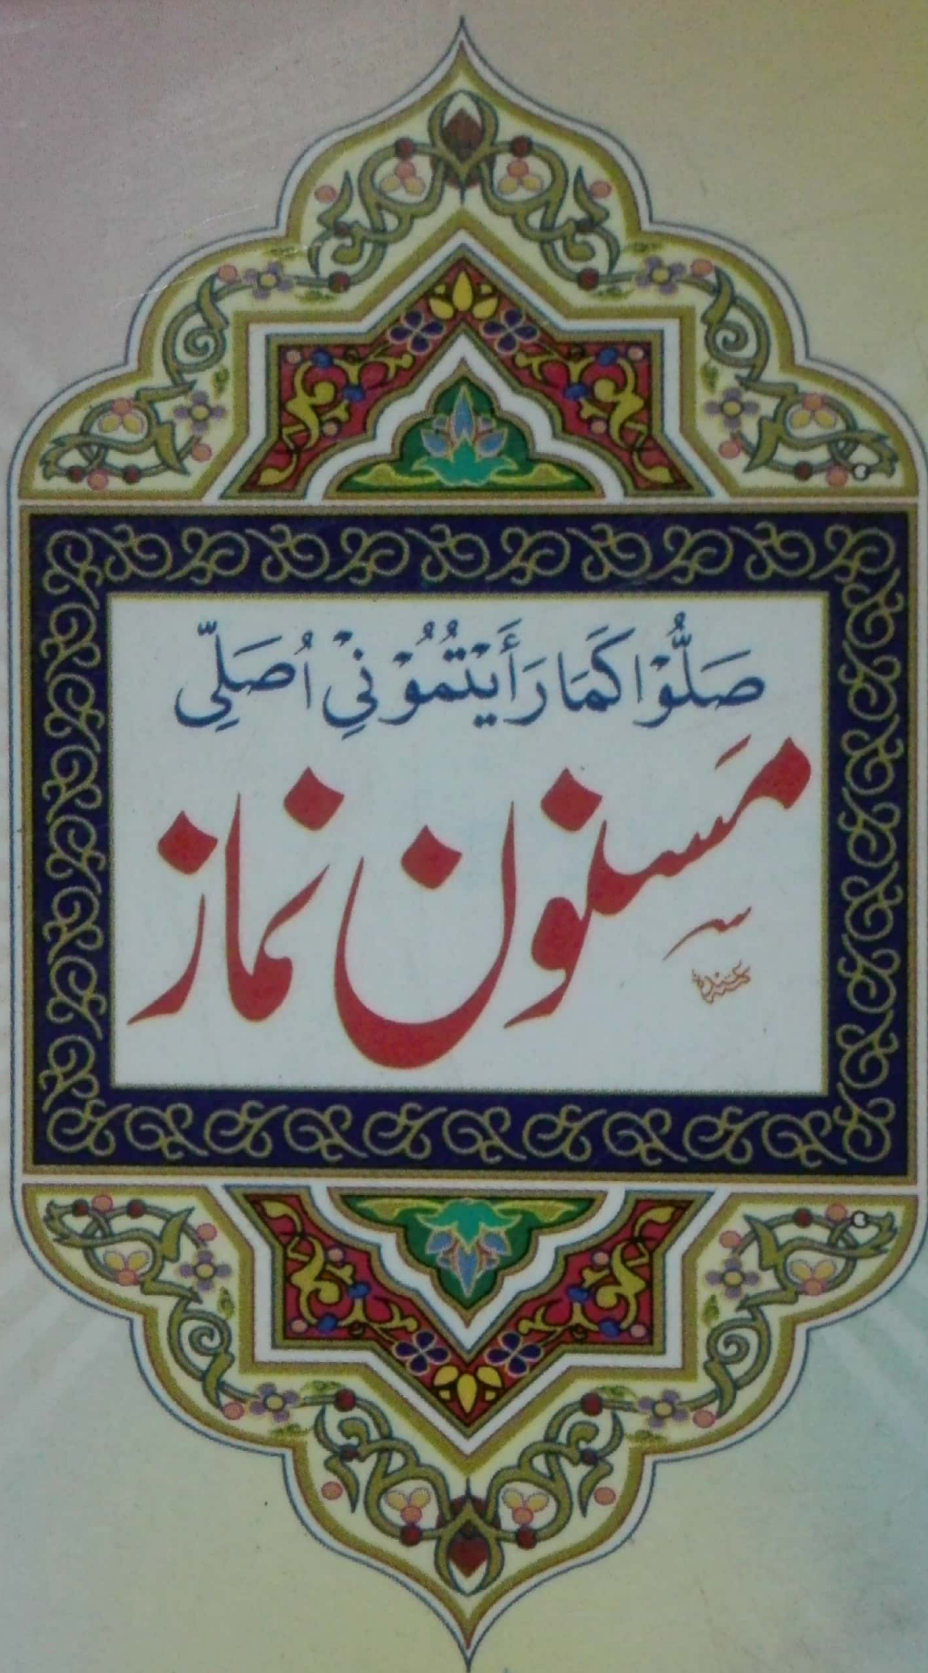 صَلُّوْا كَمَا رَأَيْتُمُوْنِيْ اُصَلِّيْ
مَسنون نماز